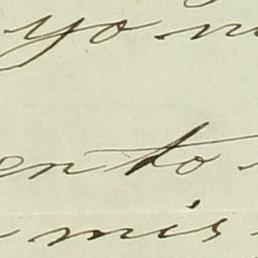 yo
ento
mis